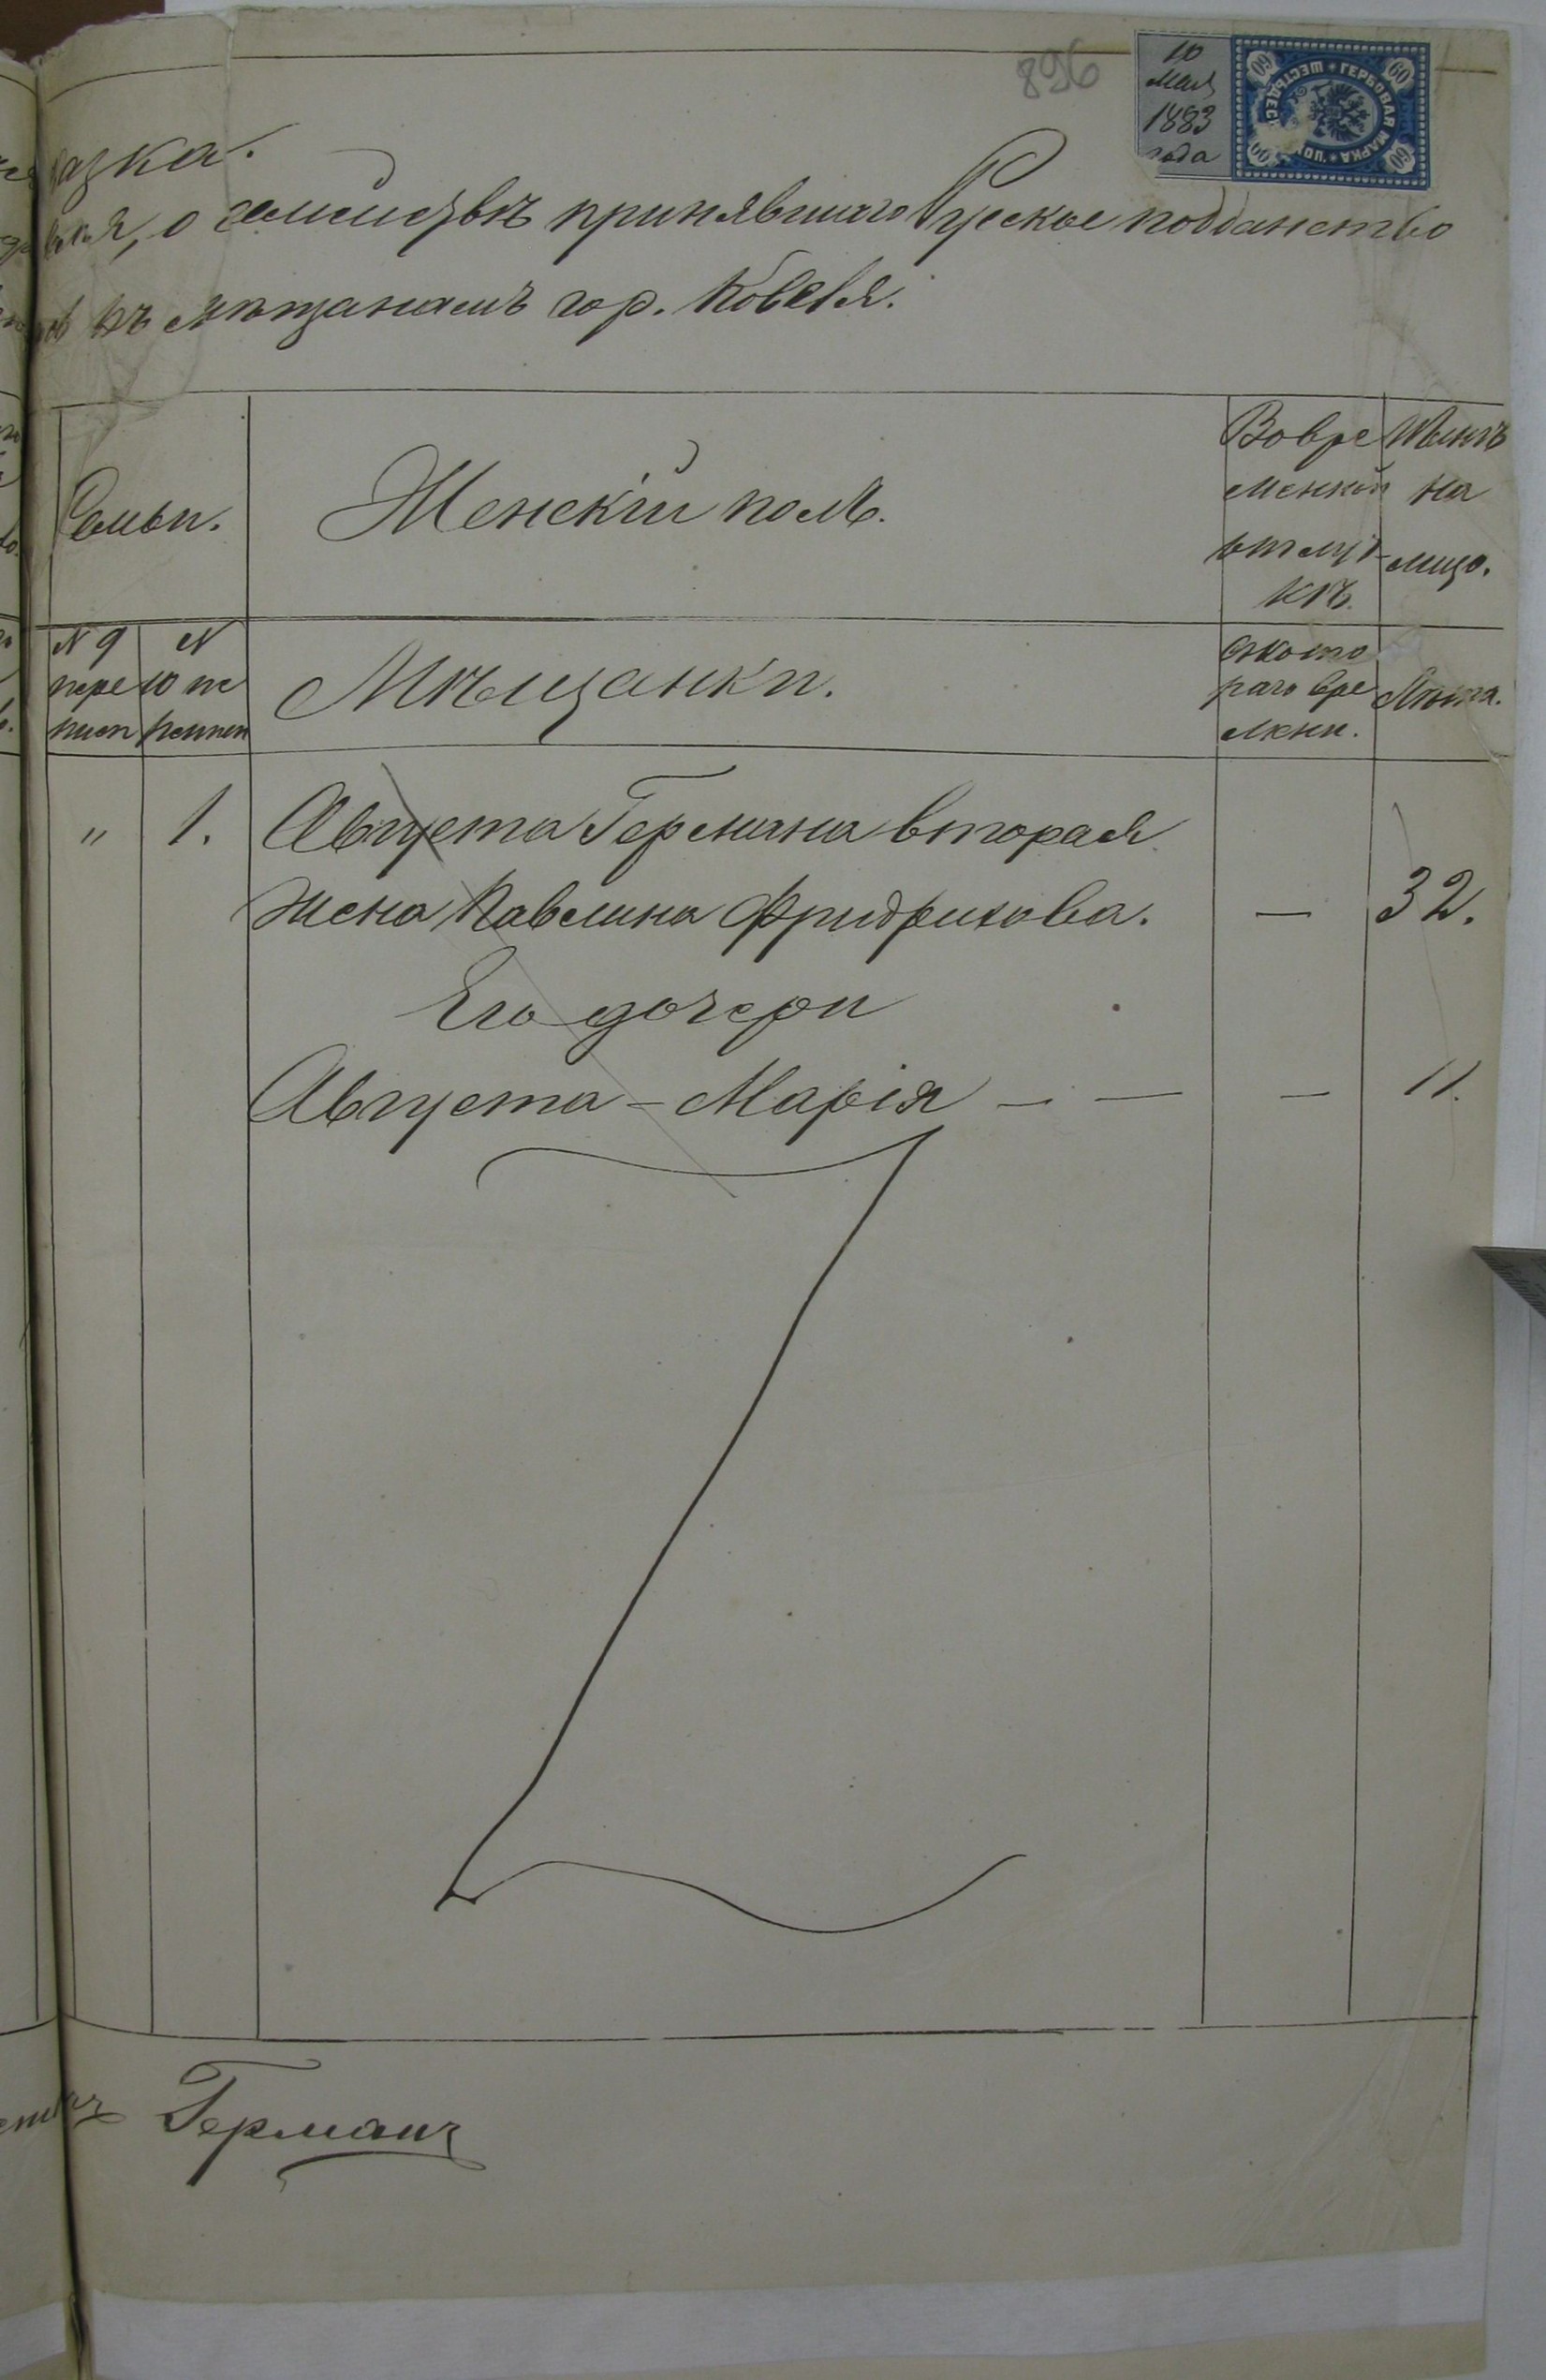 896
10
Мая
1883
года
ГЕРБОВАЯ МАРКА
60
60
60
60
азка.
о семействѣ принявшаго Руское подданство
къ мѣщанамъ гор. Ковеля.
Семьи.
Женскій полъ.
Вовре
менной
отлуч-
кѣ.
Нынѣ
на
лицо.
N 9
пере
писи
N
10 пе
реписи
Мѣщанки.
Ското
раго вре
мени.
Лѣта.
" 1. Августа Германа вторая
жена Павлина Фридрихова. — 32.
Его дочери
Августа - Марія — — — 11.
Германъ